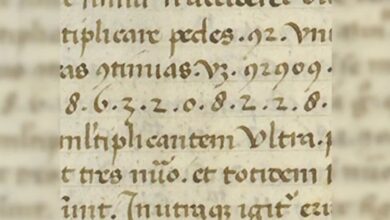 tiplicare pedes . 92 . vni
ras 9tinuas . vꝫ . 92909 .
8 . 6 . 3 . 2 . 0 . 8 . 2 . 2 . 8 .
ml'tiplicantem vltra .
t tres nũo . et totidem
Jn utraqꝫ igit